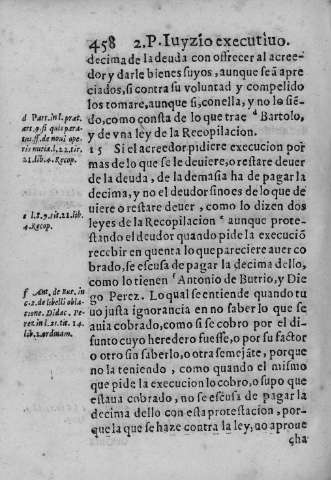 458 2. P. Iuyzio executiuo.
decima de la deuda con offrecer al acree-
dor y darle bienes suyos, aunque seã apre
ciados, si contra su voluntad y compelido
los tomare, aunque si, con ella, y no lo siẽ-
do, como cõsta de lo que trae d Bartolo,
y de vna ley de la Recopilacion.
15 Si el acreedor pidiere execucion por
mas de lo que se le deuiere, o restare deuer
de la deuda, de la demasia ha de pagar la
decima, y no el deudor sino es de lo que de
uiere o restare deuer, como lo dizen dos
leyes de la Recopilacion e aunque prote-
stando el deudor quando pide la execuciõ
recebir en quenta lo que pareciere auer co
brado, se escusa de pagar la decima dello,
como lo tienen f Antonio de Butrio, y Die
go Perez. Lo qual se entiende quando tu
uo justa ignorancia en no saber lo que se
auia cobrado, como si se cobro por el di-
funto cuyo heredero fuesse, o por su factor
o otro sin saberlo, o otra semejãte, porque
no la teniendo, como quando el mismo
que pide la execucion lo cobro, o supo que
estaua cobrado, no se escusa de pagar la
decima dello con esta protestacion, por-
que la que se haze contra la ley, no aproue
cha
d Part. in l. prat.
art. 9. si quis para-
tus. ff. de noui ope-
ris nuncia. l. 22. tit.
21. lib. 4. Recop.
e l. 7. 9. tit. 21. lib.
4. Recop.
f Ant. de But. in
c. 2. de libelli obla-
tione. Didac. Pe-
rez. in l. 21. tit. 14.
lib. 2. ordinam.